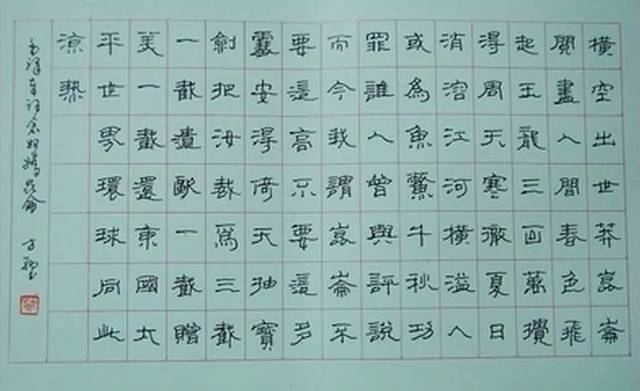 橫空出世莽崑崙
閱盡人間春色飛
起玉龍三百萬攪
得周天寒徹夏日
消溶江河橫溢人
或為魚鱉千秋功
罪誰人曾與評說
而今我謂崑崙不
要這高不要這多
雪安得倚天抽寶
劍把汝裁為三截
一截遺歐一截贈
美一截還東國太
平世界環球同此
涼熱
毛澤東詞念奴嬌昆侖